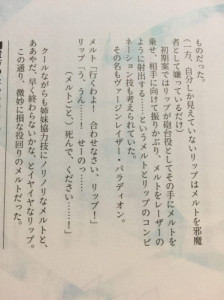 ものだった。
（一方、自分しか見えていないリップはメルトを邪魔
者として嫌っているだけ）
初期案ではリップが砲台役としてその手にメルトを
乗せ、相手に向けて振りかぶり、メルトをレーザーの
ように射出する……！というメルトとリップのコンビ
ネーション技も考えられていた。
その名もヴァージンレイザー・パラディオン。
メルト「行くわよ！　合わせなさい、リップ！」
リップ「う、うん……！　せーのっ……
（メルトごと、死んで、ください……！」
クールながらも姉妹協力技にノリノリなメルトと、
ああやだ、早く終わらないかな、とイヤイヤなリップ。
この通り、微妙に損な役回りのメルトだった。